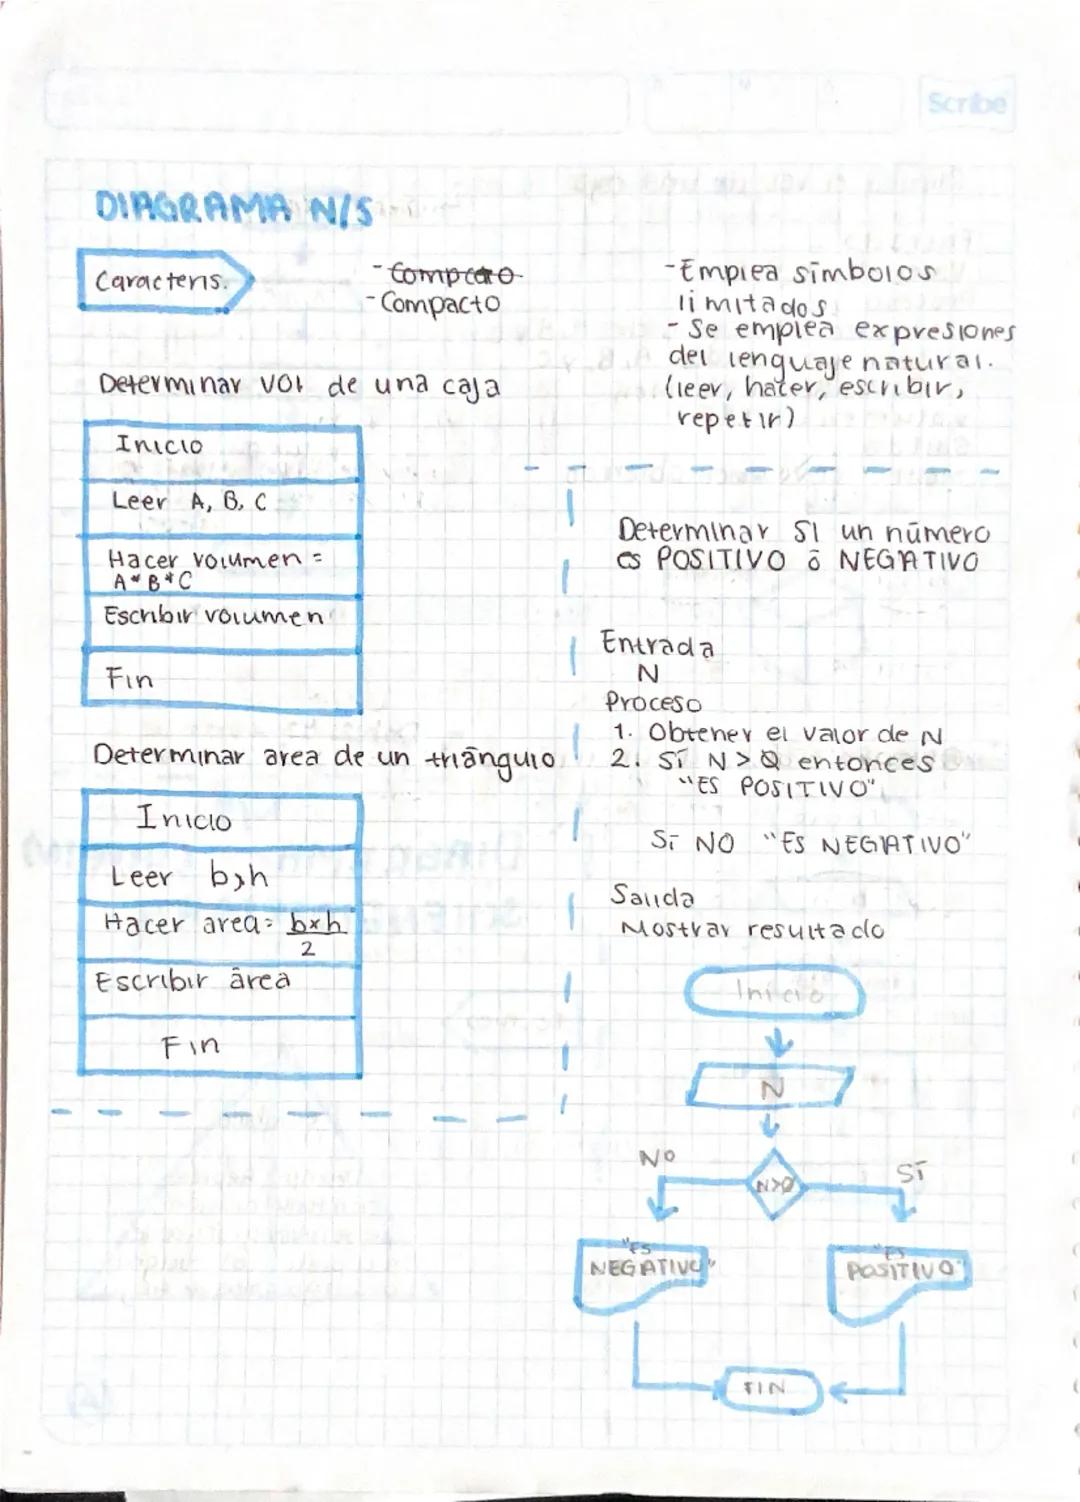 Scribe
DIAGRAMA N/S
Caracteris.
- Compacto
- Emplea símbolos
limitados
- Se emplea expresiones
del lenguaje natural.
(leer, hater, escribir,
repetir)
Determinar vol de una caja
Inicio
Leer A, B, C
Hacer volumen =
A*B*C
Escribir volumen
Fin
Determinar area de un triángulo
Inicio
Leer b,h
Hacer area= b×h
2
Escribir área
Fin
Determinar SI un número
es POSITIVO ó NEGATIVO
Entrada
N
Proceso
1. Obtener el valor de N
2. Sí N > 0 entonces
"ES POSITIVO"
Sí NO "ES NEGATIVO"
Salida
Mostrar resultado
Inicio
N
N>0
No
SÍ
"ES
NEGATIVO"
"ES
POSITIVO"
FIN